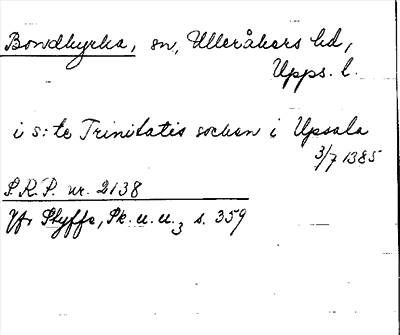 Bondkyrka, sn, Ulleråkers hd,
Upps. l.
i s:te Trinitatis socken i Upsala
3/7 1385
S.R.P. nr. 2138
Jfr Styffe, Sk. u. u.3 s. 359